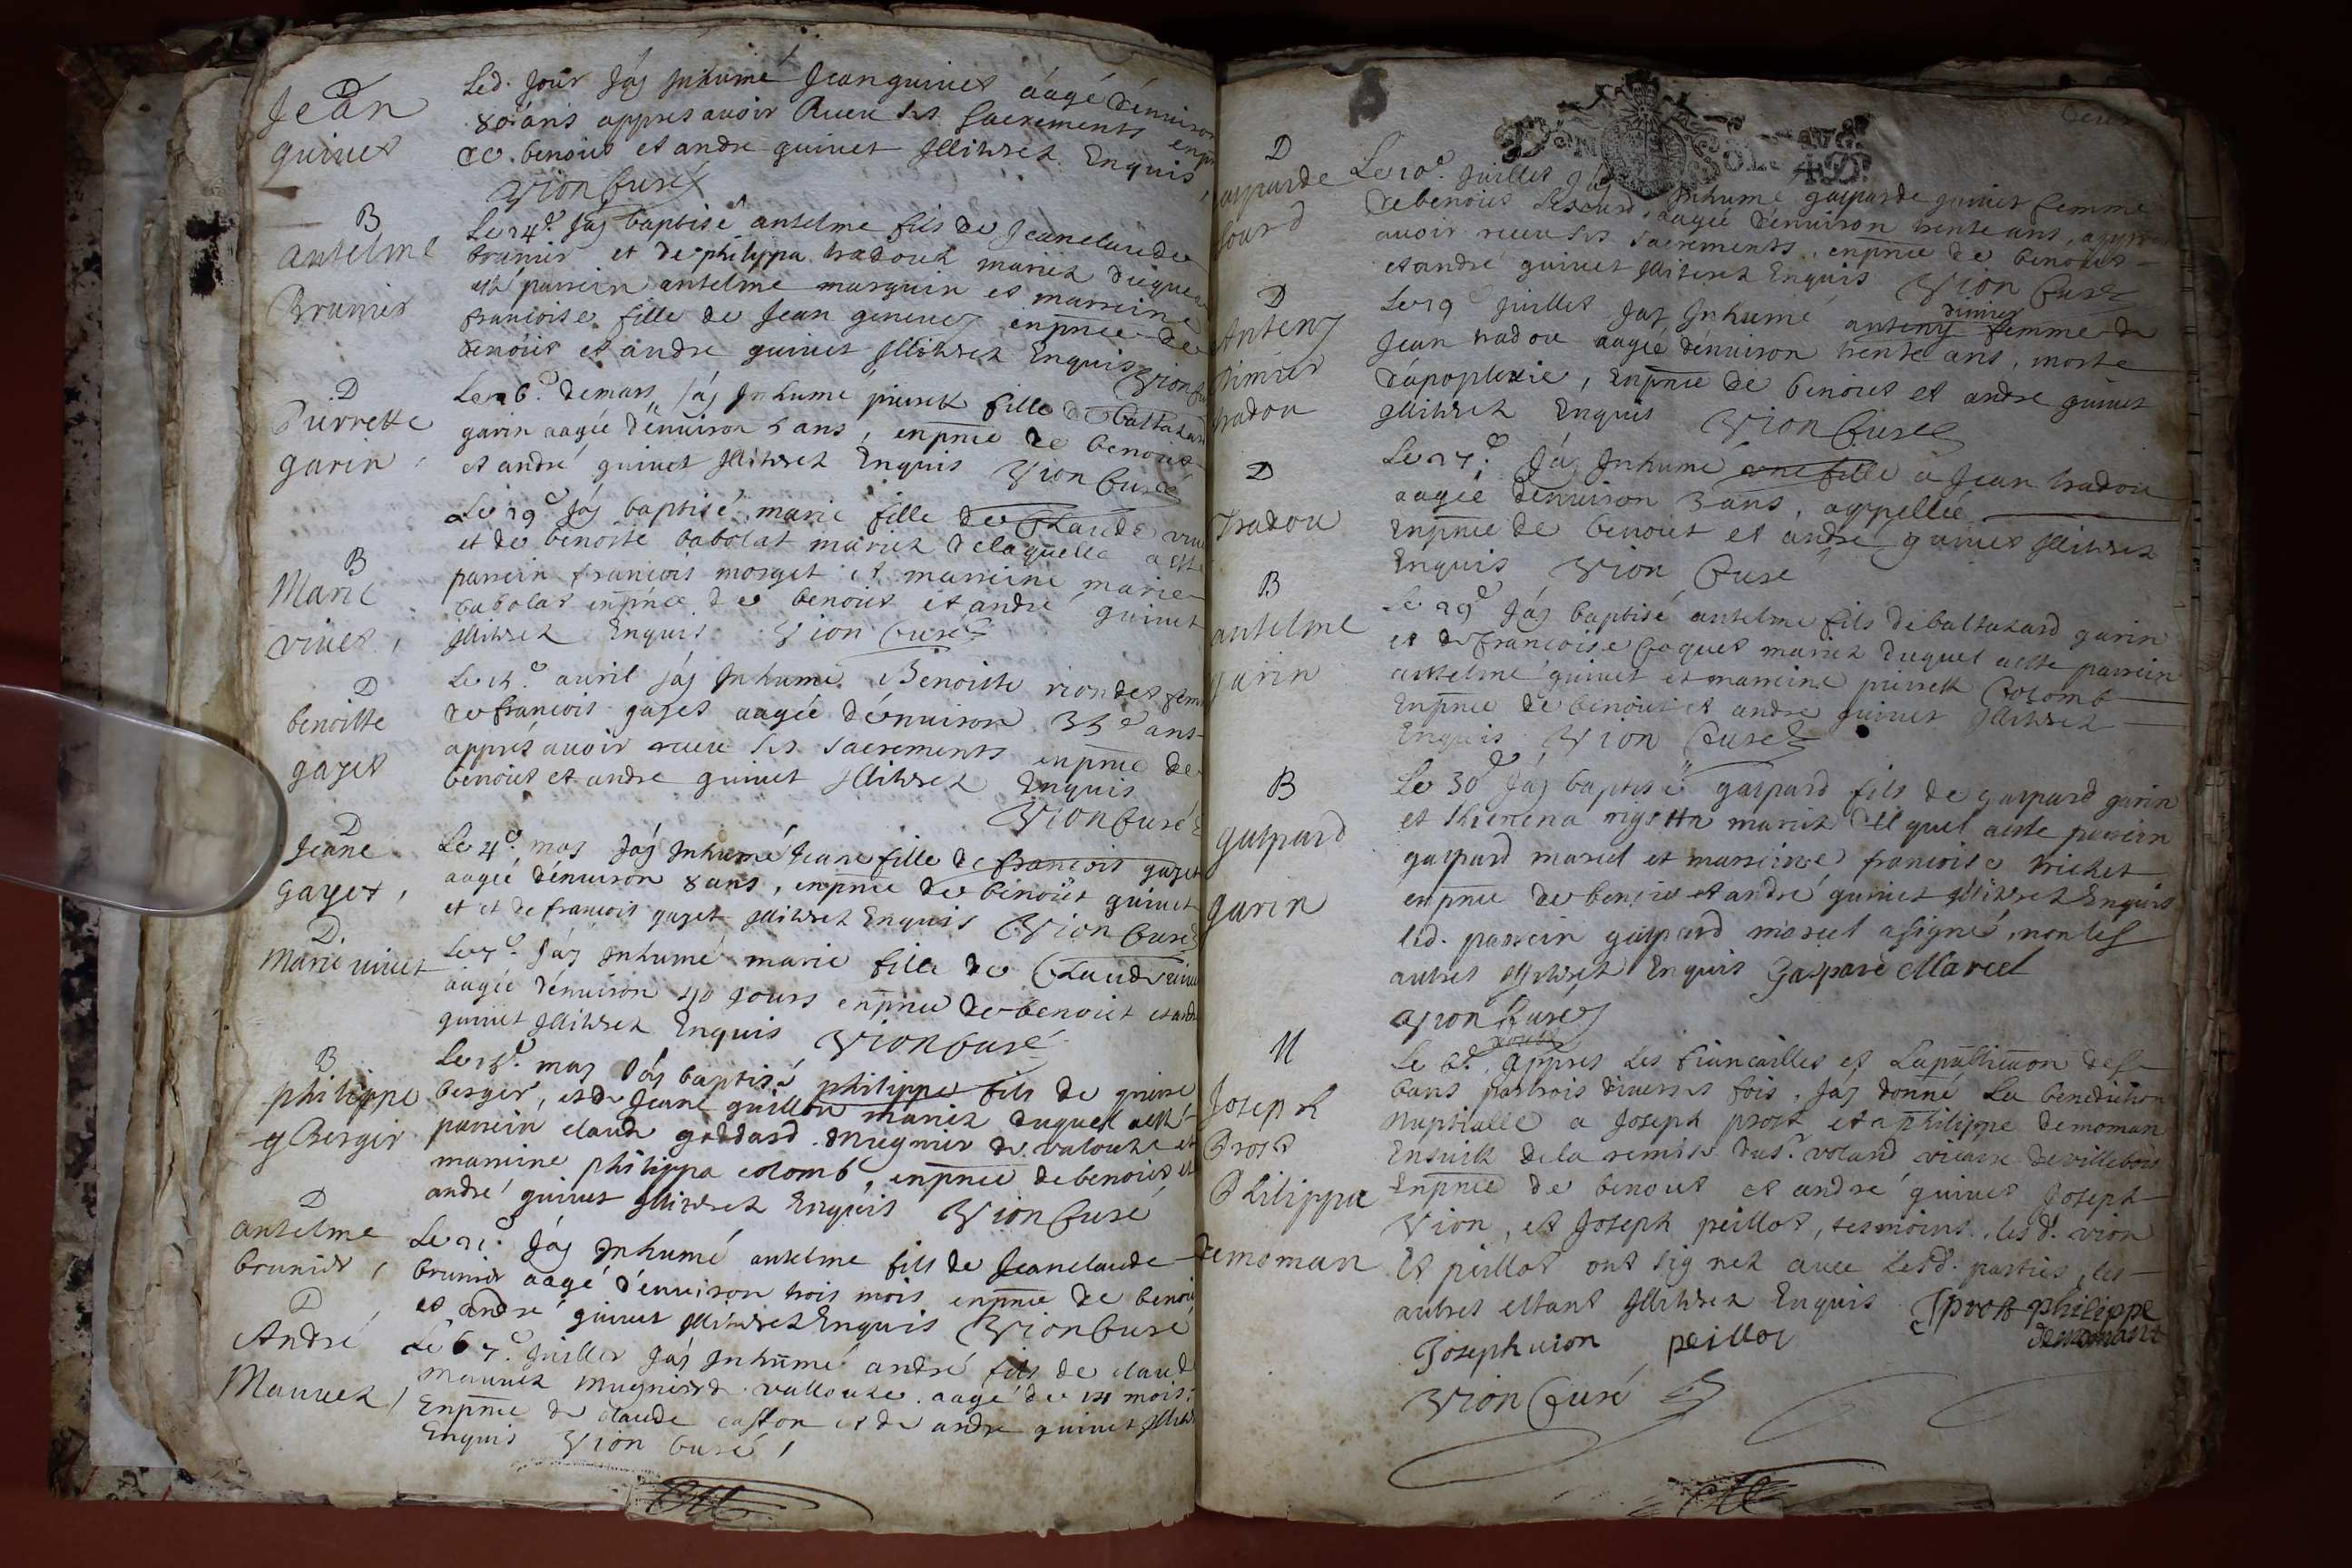 D
Jean
guinet
Led. Jour Jáy Inhumé Jean guinet áagé d'énuiron
80 ans appres auoir Receu Ses Sacrements enpnce
de benoist et andre guinet Illitrez Enquis
Vion Curé
B
antelme
Brunier
Le 24e. Jáy baptisé antelme fils de Jean claude
brunier et de philippa tradouz mariez duquel
est parrein antelme marguin et marreine
francoise fille de Jean geneuey enpnce de
benoist et andre guinet Illitrez Enquis Vion
D
Pierrette
garin
Le 26e. de mars Jáy Inhumé pierrette fille de Baltazard
garin aagée d'énuiron 5 ans, enpnce de benoist
et andré guinet Illitrez Enquis Vion Curé
B
Marie
viuet
Le 29e Jáy baptisé marie fille de Claude viuet
et de benoiste babolat mariez de laquelle a esté
parrein francois morget et marreine marie
babolat enpnce de benoist et andré guinet
Illitrez Enquis Vion Curé
D
benoiste
gayet
auril Jáy Inhumé Benoiste riondet fem
de francois gayet aagée d'énuiron 35e ans
apprés auoir receu ses sacrements enpnce de
benoist et andre guinet Illitrez Enquis
Vion Curé
D
Jeane
Gayet
Le 4e. may Jáy Inhumé Jeane fille de francois gayet
aagée d'énuiron 8 ans, enpnce de benoist guinet
et et de francois gayet Illitrez Enquis Vion Curé
D.
Marie viuet
Le 7e. Jáy Inhumé marie fille de Claude viuet
aagée d'énuiron 40 Jours enpnce de benoist et andre
guinet Illitrez Enquis Vion Curé
B
philippe
Berger
Le 18e. may Jáy baptisé philippe fils de
berger, et de Jeane guillou mariez duquel a esté
parrein claude goddard Mugnier de valouze et
marreine philippa colomb, enpnce de benoist et
andré guinet Illitrez Enquis Vion Curé
D
antelme
brunier
Le 21e. Jáy Inhumé antelme fils de Jean claude
brunier aagé d'énuiron trois mois enpnce de benoist
et andré guinet Illitrez Enquis Vion Curé
D
André
Mauuez
Le 7e. Juillet Jáy Inhumé andré fils de claude
mauuez mugnier de vallouze aagé de mois
Enpnce de claude caston et de andre guinet Illitrez
Enquis Vion Curé
D
gasparde
Lourd
Le 10e. Juillet Jáy Inhumé gasparde guinet femme
de benoist Lescurd, aagée d'énuiron trente ans, appres
auoir receu ses sacrements, enpnce de benoist
et andré guinet Illitrez Enquis Vion Curé
D
Anteny
Dimier
tradou
Le 19e Juillet Jáy Inhumé anteny dimier femme de
Jean tradou aagée d'énuiron trente ans, morte
d'apoplexie, Enpnce de benoist et andre guinet
Illitrez Enquis Vion Curé
D
Tradou
Le 27e. Jáy Inhumé une fille a Jean tradou
aagée d'énuiron 3 ans, appellée
Enpnce de benoist et andre guinet Illitrez
Enquis Vion Curé
B
antelme
garin
Le 29e Jáy baptisé antelme fils de baltazard garin
et de francoise Coquet mariez duquel a esté parrein
antelme guinet et marreine pierrette Colomb
Enpnce de benoist et andre guinet Illitrez
Enquis Vion Curé
B
gaspard
garin
Le 30e Jáy baptisé gaspard fils de gaspard garin
et mariez duquel a esté parrein
gaspard marcel et marreine francoise trichet
enpnce de benoist et andré guinet Illitrez Enquis
led. parrein gaspard marcel a signé, non les
autres Illitrez Enquis Gaspare Marcel
Vion Curé
M
Joseph
Prost
Philippa
demoman
Le 2e. aoust Appres les fiancailles et La publication des
bans par trois diuerses fois, Jáy donné La benediction
Nuptialle a Joseph prost et a philippe demoman
Ensuitte de la remise du Sr. voland vicaire de villebois
Enpnce de benoist et andré guinet Joseph
Vion, et Joseph peillot, tesmoins, lesd. vion
Et peillot ont signez auec lesd. parties, les
autres estant Illitrez Enquis J prost philippe
demoman
Joseph uion peillot
Vion Curé